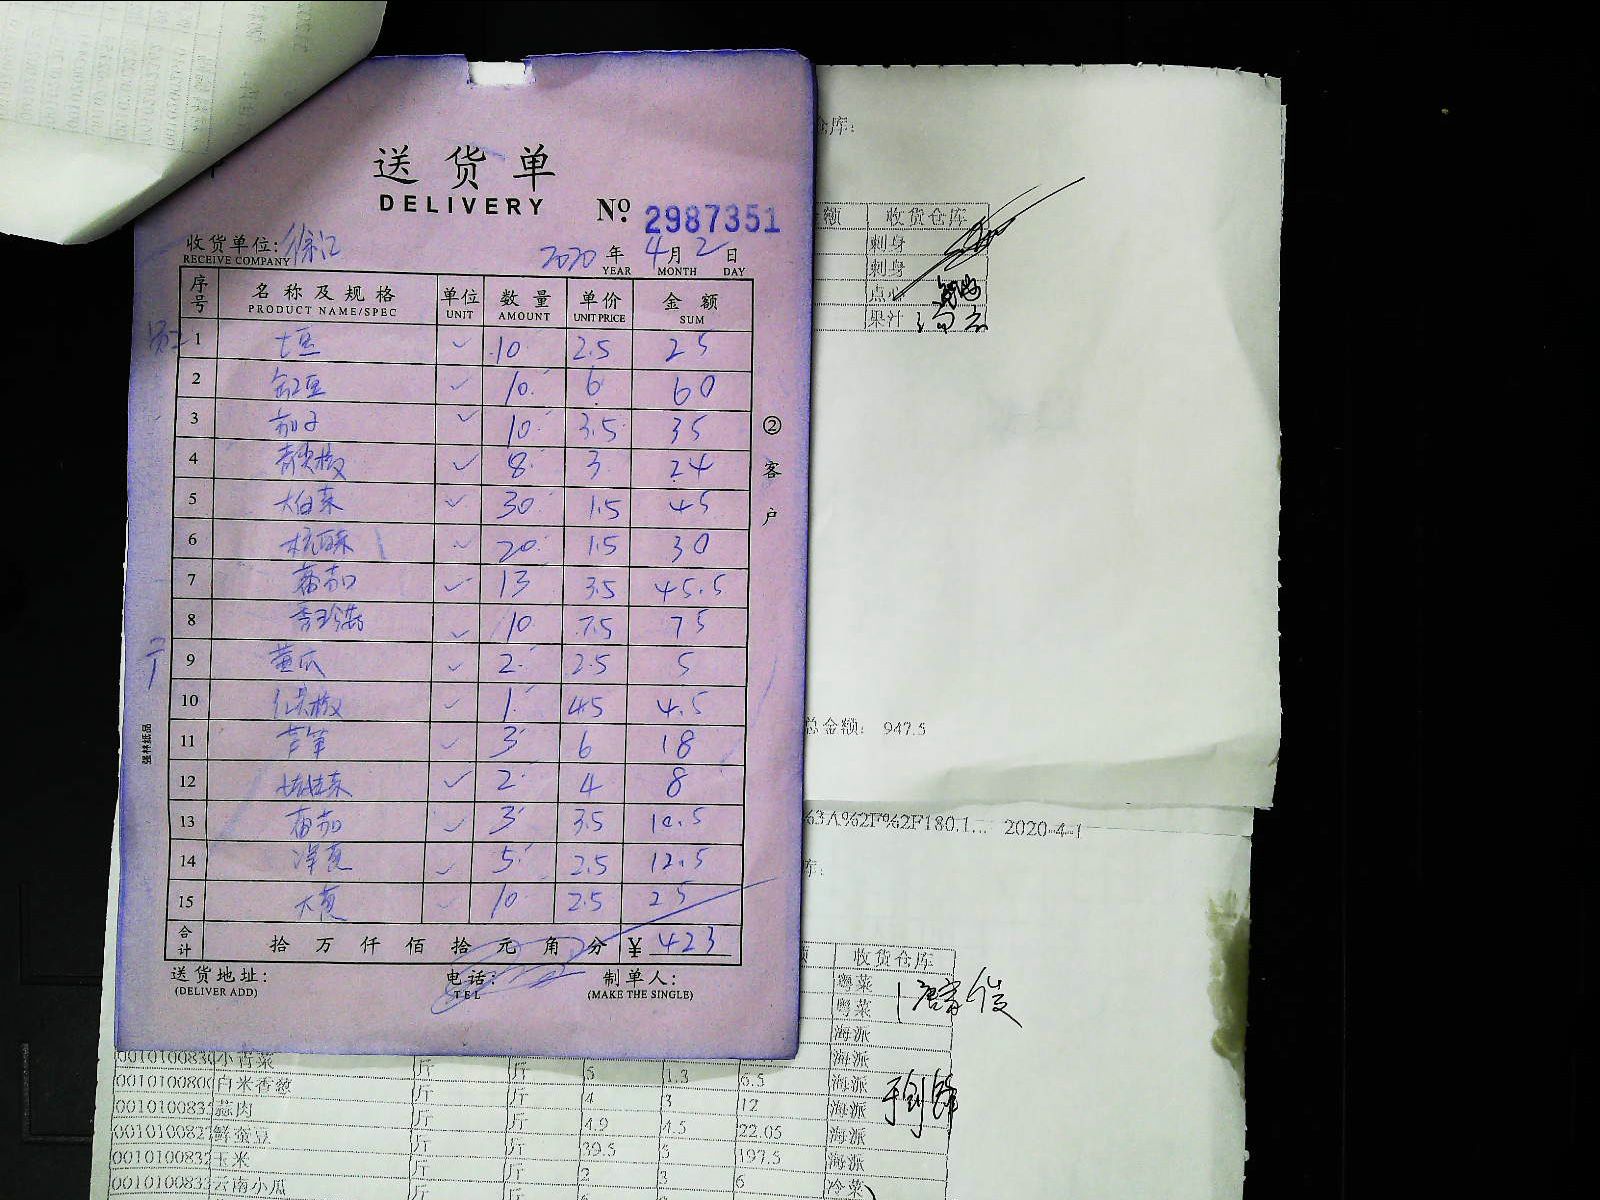 送货单
DELIVERY No 2987351
收货单位: 徐汇 2020 年 4 月 2 日
RECEIVE COMPANY YEAR MONTH DAY
序号 名称及规格 单位 数量 单价 金额
PRODUCT NAME/SPEC UNIT AMOUNT UNIT PRICE SUM
1 土豆 10 2.5 25
2 缸豆 10 6 60
3 茄子 10 3.5 35
4 青尖椒 8 3 24
5 大白菜 30 1.5 45
6 杭白菜 20 1.5 30
7 蕃茄 13 3.5 45.5
8 10 7.5 75
9 黄瓜 2 2.5 5
10 尖椒 1 4.5 4.5
11 芦笋 3 6 18
12 2 4 8
13 蕃茄 3 3.5 10.5
14 洋葱 5 2.5 12.5
15 大葱 10 2.5 25
合计 拾 万 仟 佰 拾 元 角 分 ¥ 423
送货地址: 电话: 制单人:
(DELIVER ADD) TEL (MAKE THE SINGLE)
② 客户
强林纸品
仓库:
额 收货仓库
刺身
刺身
点心
果汁
总金额: 947.5
63A%2F%2F180.1... 2020-4-1
库:
收货仓库
粤菜
粤菜
海派
小青菜 斤 斤 5 1.3 6.5 海派
白米香葱 斤 斤 4 3 12 海派
蒜肉 斤 斤 4.9 4.5 22.05 海派
鲜蚕豆 斤 斤 39.5 5 197.5 海派
玉米 斤 斤 2 3 6 海派
云南小瓜 斤 斤 冷菜